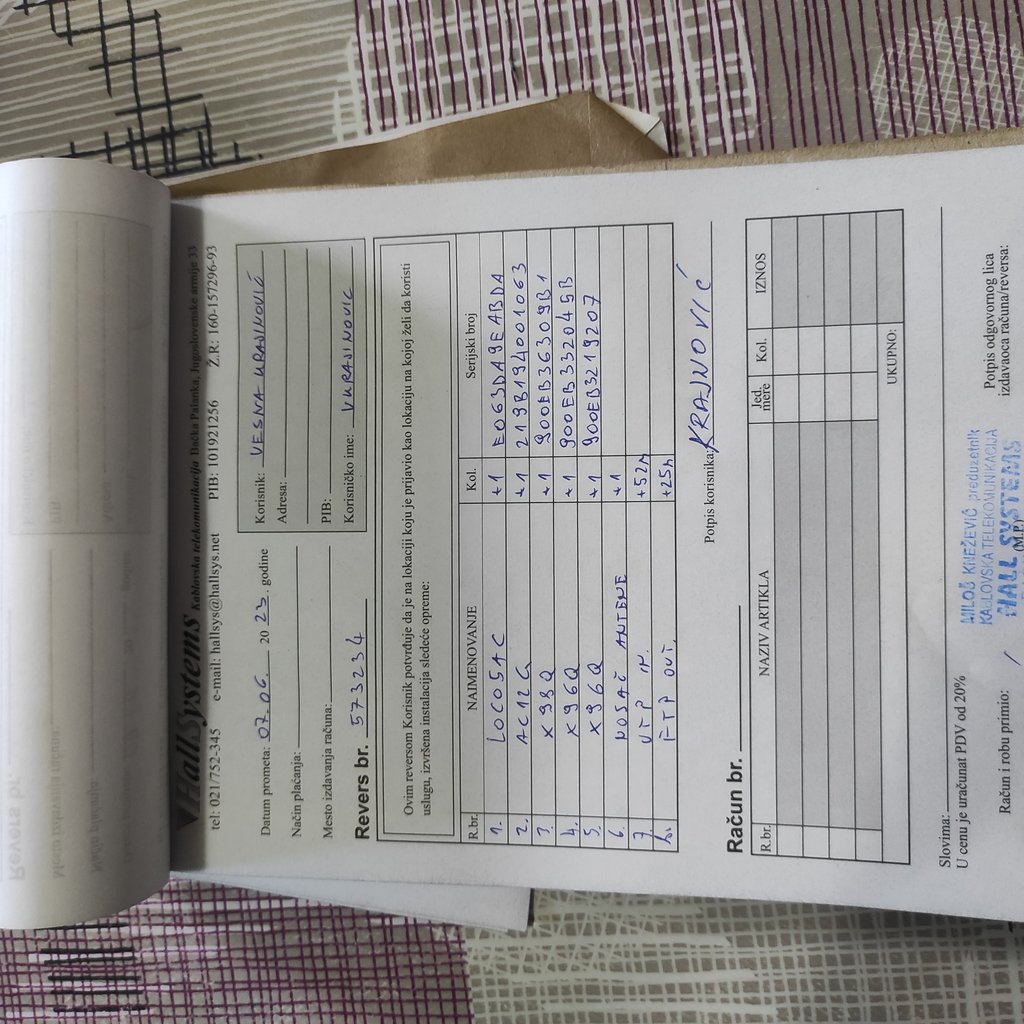 HallSystems Kablovska telekomunikacija Bačka Palanka, Jugoslovenske armije 33
tel: 021/752-345 e-mail: hallsys@hallsys.net PIB: 101921256 Ž.R: 160-157296-93
Datum prometa: 07.06. 20 23. godine
Način plaćanja:
Mesto izdavanja računa:
Revers br. 573234
Korisnik: VESNA KRAJINOVIĆ
Adresa:
PIB:
Korisničko ime: VKRAJINOVIC
Ovim reversom Korisnik potvrđuje da je na lokaciji koju je prijavio kao lokaciju na kojoj želi da koristi
uslugu, izvršena instalacija sledeće opreme:
R.br. NAIMENOVANJE Kol. Serijski broj
1. LOCO5AC +1 E063DA9EABDA
2. AC12G +1 219B194001063
3. X98Q +1 900EB36309B1
4. X96Q +1 900EB332045B
5. X96Q +1 900EB3219207
6. NOSAČ ANTENE +1
7. UTP IN. +52m
8. FTP OUT. +25m
Potpis korisnika: KRAJNOVIĆ
Račun br.
R.br. NAZIV ARTIKLA Jed. mere Kol. IZNOS
UKUPNO:
Slovima:
U cenu je uračunat PDV od 20%
Račun i robu primio: /
MILOŠ KNEŽEVIĆ preduzetnik
KABLOVSKA TELEKOMUNIKACIJA
HALL SYSTEMS
(M.P.)
Potpis odgovornog lica
izdavaoca računa/reversa: